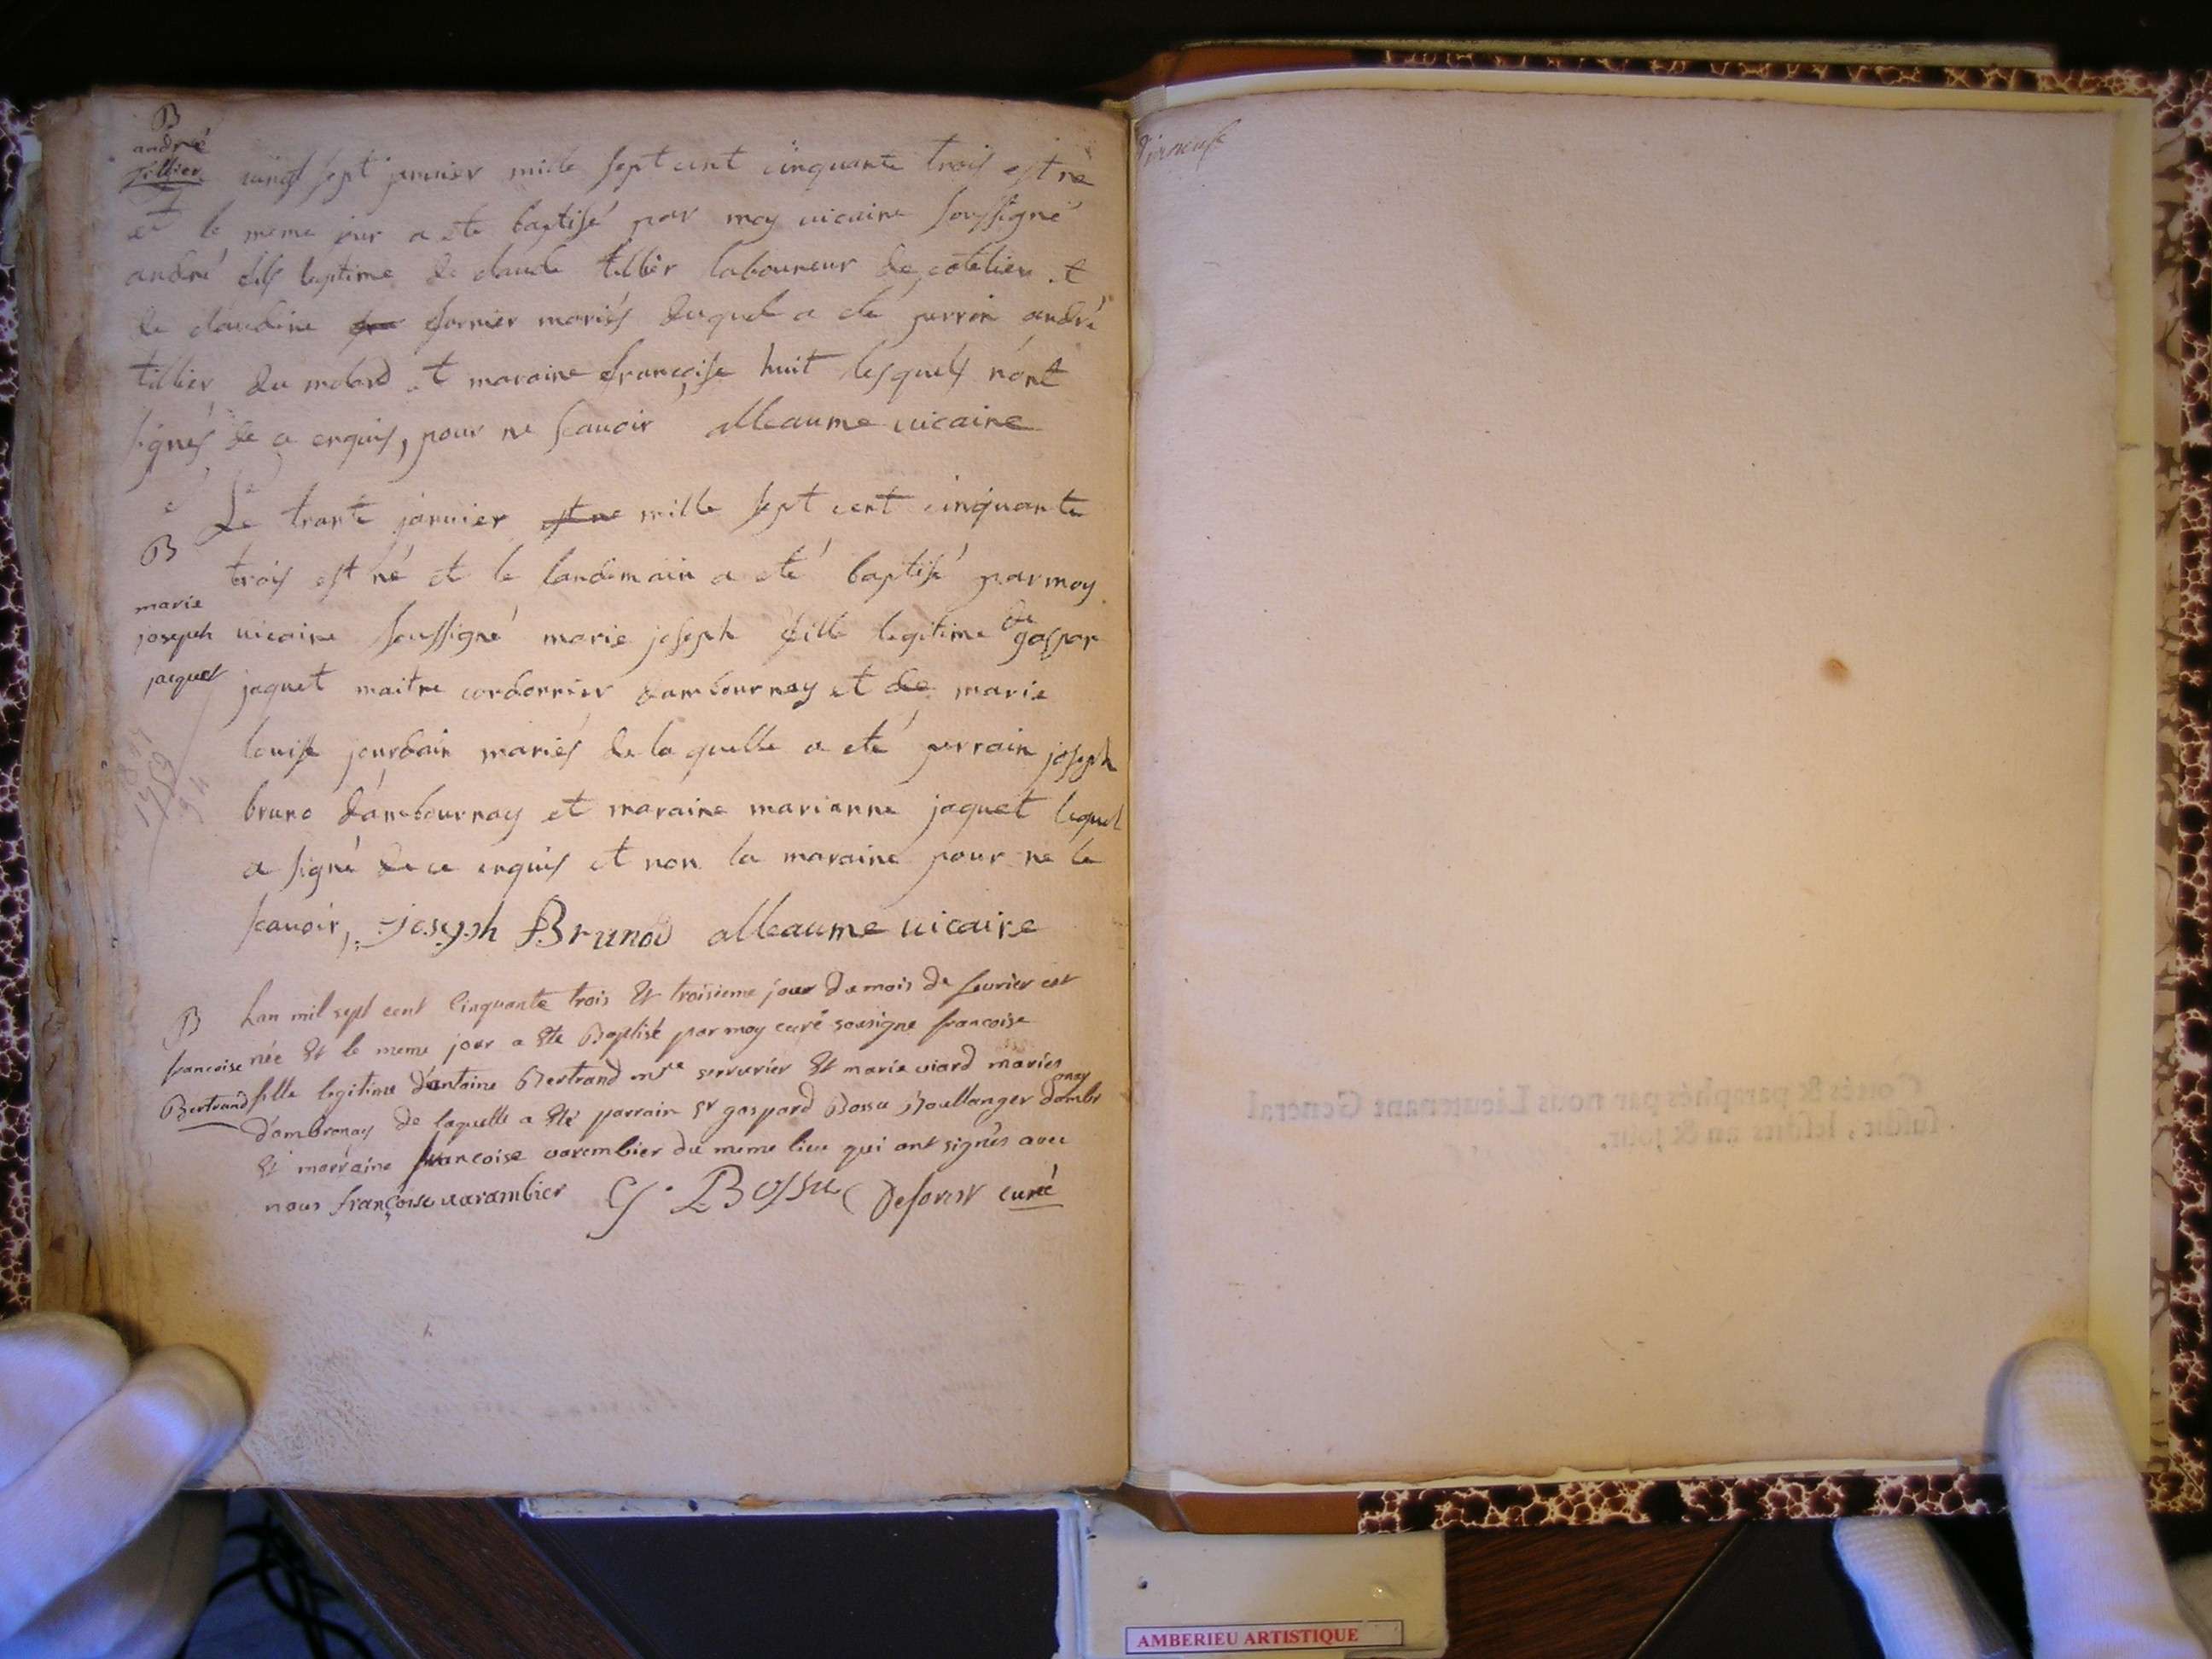 B
andré
tillier
vingt sept januier mille sept cent cinquante trois est né
et le meme jour a ete baptisé par moy uicaire soussigné
andré fils legitime de claude tillier laboureur de cotelieu et
de claudine fornier mariés duquel a eté perrin andré
tillier du molard et maraine francoise huit lesquels n'ont
signés de ce enquis, pour ne scauoir alleaume uicaire
Le trante januier est ne mille sept cent cinquante
B
trois est né et le landemain a eté baptisé par moy
marie
joseph
jaquet
uicaire soussigné marie joseph fille legitime de gaspar
jaquet maitre cordonnier dambournay et de marie
louise jourdain mariés de la quelle a eté perrain joseph
bruno d'ambournay et maraine marianne jaquet lequel
a signé de ce enquis et non la maraine pour ne le
scauoir, joseph Bruno alleaume uicaire
B
francoise
Bertrand
Lan mil sept cent Cinquante trois Et troisieme jour du mois de feurier est
née Et le meme jour a Ete Baptisé par moy curé sousigne francoise
fille legitime d'antoine Bertrand mre serrurier Et marie uiard maries
d'ambronay de laquelle a Eté parrain sr gaspard Bossu Boullanger dambronay
Et marraine francoise varembier du meme lieu qui ont signés auec
nous françoise uarambier G. Bossu Deforest curé
Cottés & paraphés par nous Lieutenant General
susdit, lesdits an & jour.
AMBERIEU ARTISTIQUE